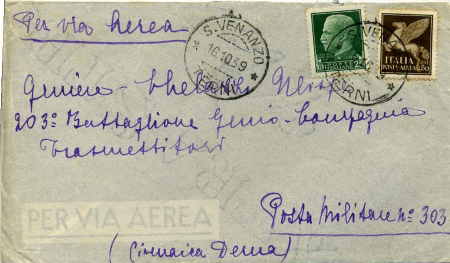 Per via Aerea
S. VENANZO
16.10.39
TERNI
ITALIA
POSTA AEREA 50
S. VENANZO
TERNI
Geniere
203º Battaglione Genio-Compagnia
Trasmettitori
PER VIA AEREA
Posta Militare nº 303
(Cirenaica Derna)